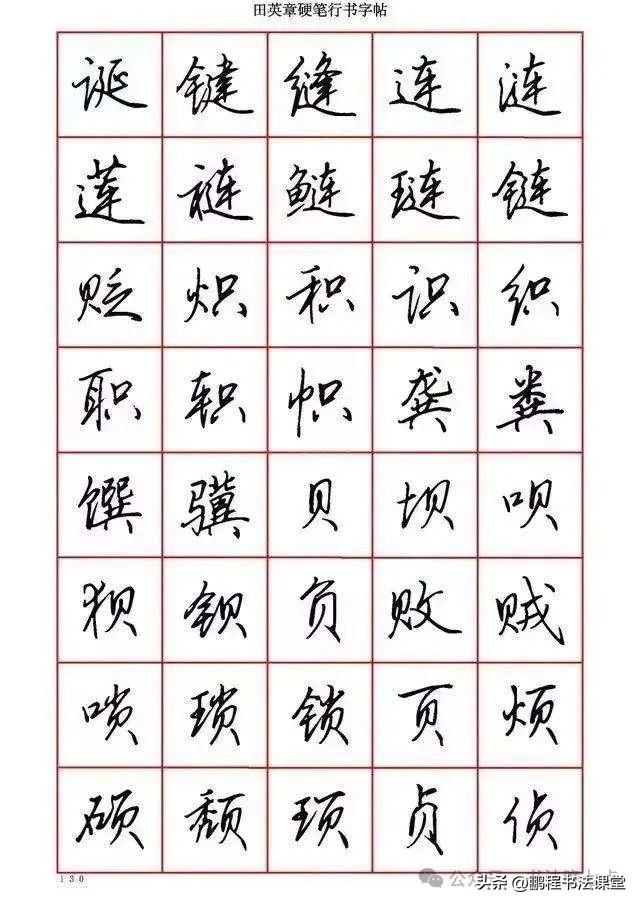 田英章硬笔行书字帖
诞 键 缝 连 涟
莲 裢 鲢 琏 链
贬 炽 积 识 织
职 轵 帜 龚 粪
馔 骥 贝 坝 呗
狈 钡 负 败 贼
唢 琐 锁 页 烦
硕 颓 顼 贞 侦
130
公众号
头条@鹏程书法课堂